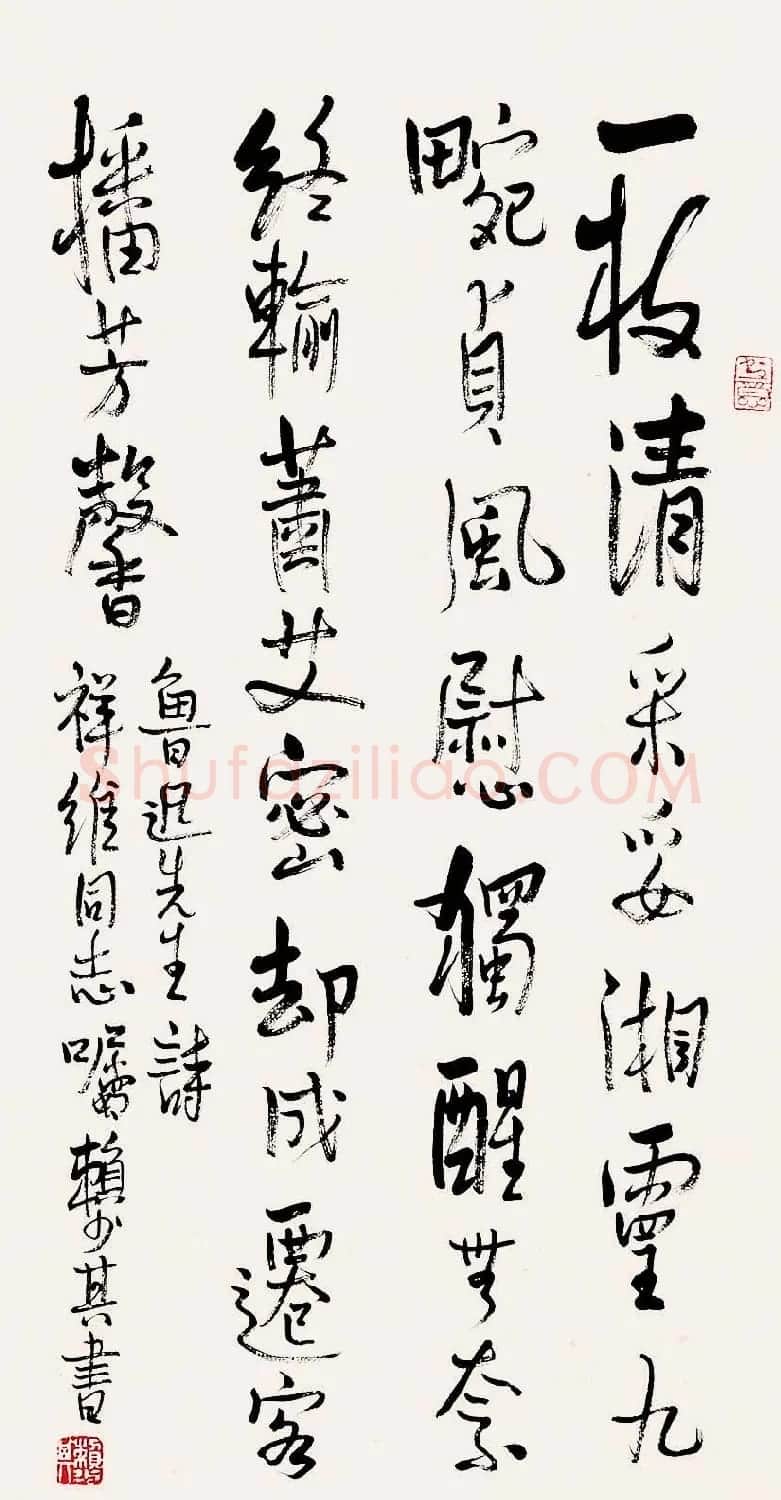 一枝清采妥湘靈九
畹貞風慰獨醒無奈
終輸蕭艾密却成遷客
播芳馨
魯迅先生詩
祥維同志囑賴少其書
Shufaziliao.COM